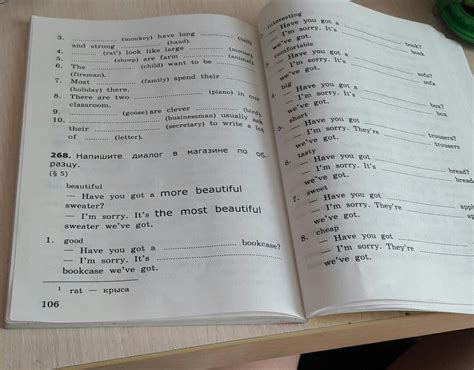 3. (monkey) have long (tail)
and strong (hand).
4. (rat¹) look like large
5. (sheep) are farm (animal).
6. The (child) want to be
(fireman).
7. Most (family) spend their
(holiday) there.
8. There are two (piano) in our
classroom.
9. (goose) are clever (bird).
10. (businessman) usually ask
their (secretary) to write a lot
of (letter).
268. Напишите диалог в магазине по об-
разцу.
(§ 5)
beautiful
— Have you got a more beautiful
sweater?
— I'm sorry. It's the most beautiful
sweater we've got.
1. good
— Have you got a bookcase?
— I'm sorry. It's
bookcase we've got.
¹ rat — крыса
106
interesting
— Have you got a book?
— I'm sorry. It's book
we've got.
comfortable
— Have you got a sofa?
— I'm sorry. It's sofa
we've got.
big
— Have you got a
— I'm sorry. It's
we've got.
5. short
— Have you got trousers?
— I'm sorry. They're trousers
we've got.
6. tasty
— Have you got bread?
— I'm sorry. It's bread
we've got.
7. sweet
— Have you got
— I'm sorry. They're
we've got.
8. cheap
— Have you got
— I'm sorry. They're
we've got.